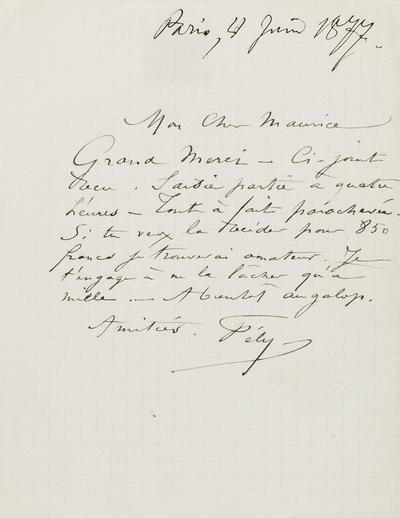 Paris, 4 Juin 1877.
Mon Cher Maurice
Grand Merci – Ci-joint
Reçu. Saisie partie à quatre
heures – Tout à fait parachevée.
Si tu veux la céder pour 850
francs je trouverai amateur. Je
t'engage à ne la lâcher qu'à
mille. – A bientôt au galop.
Amitiés. Fély